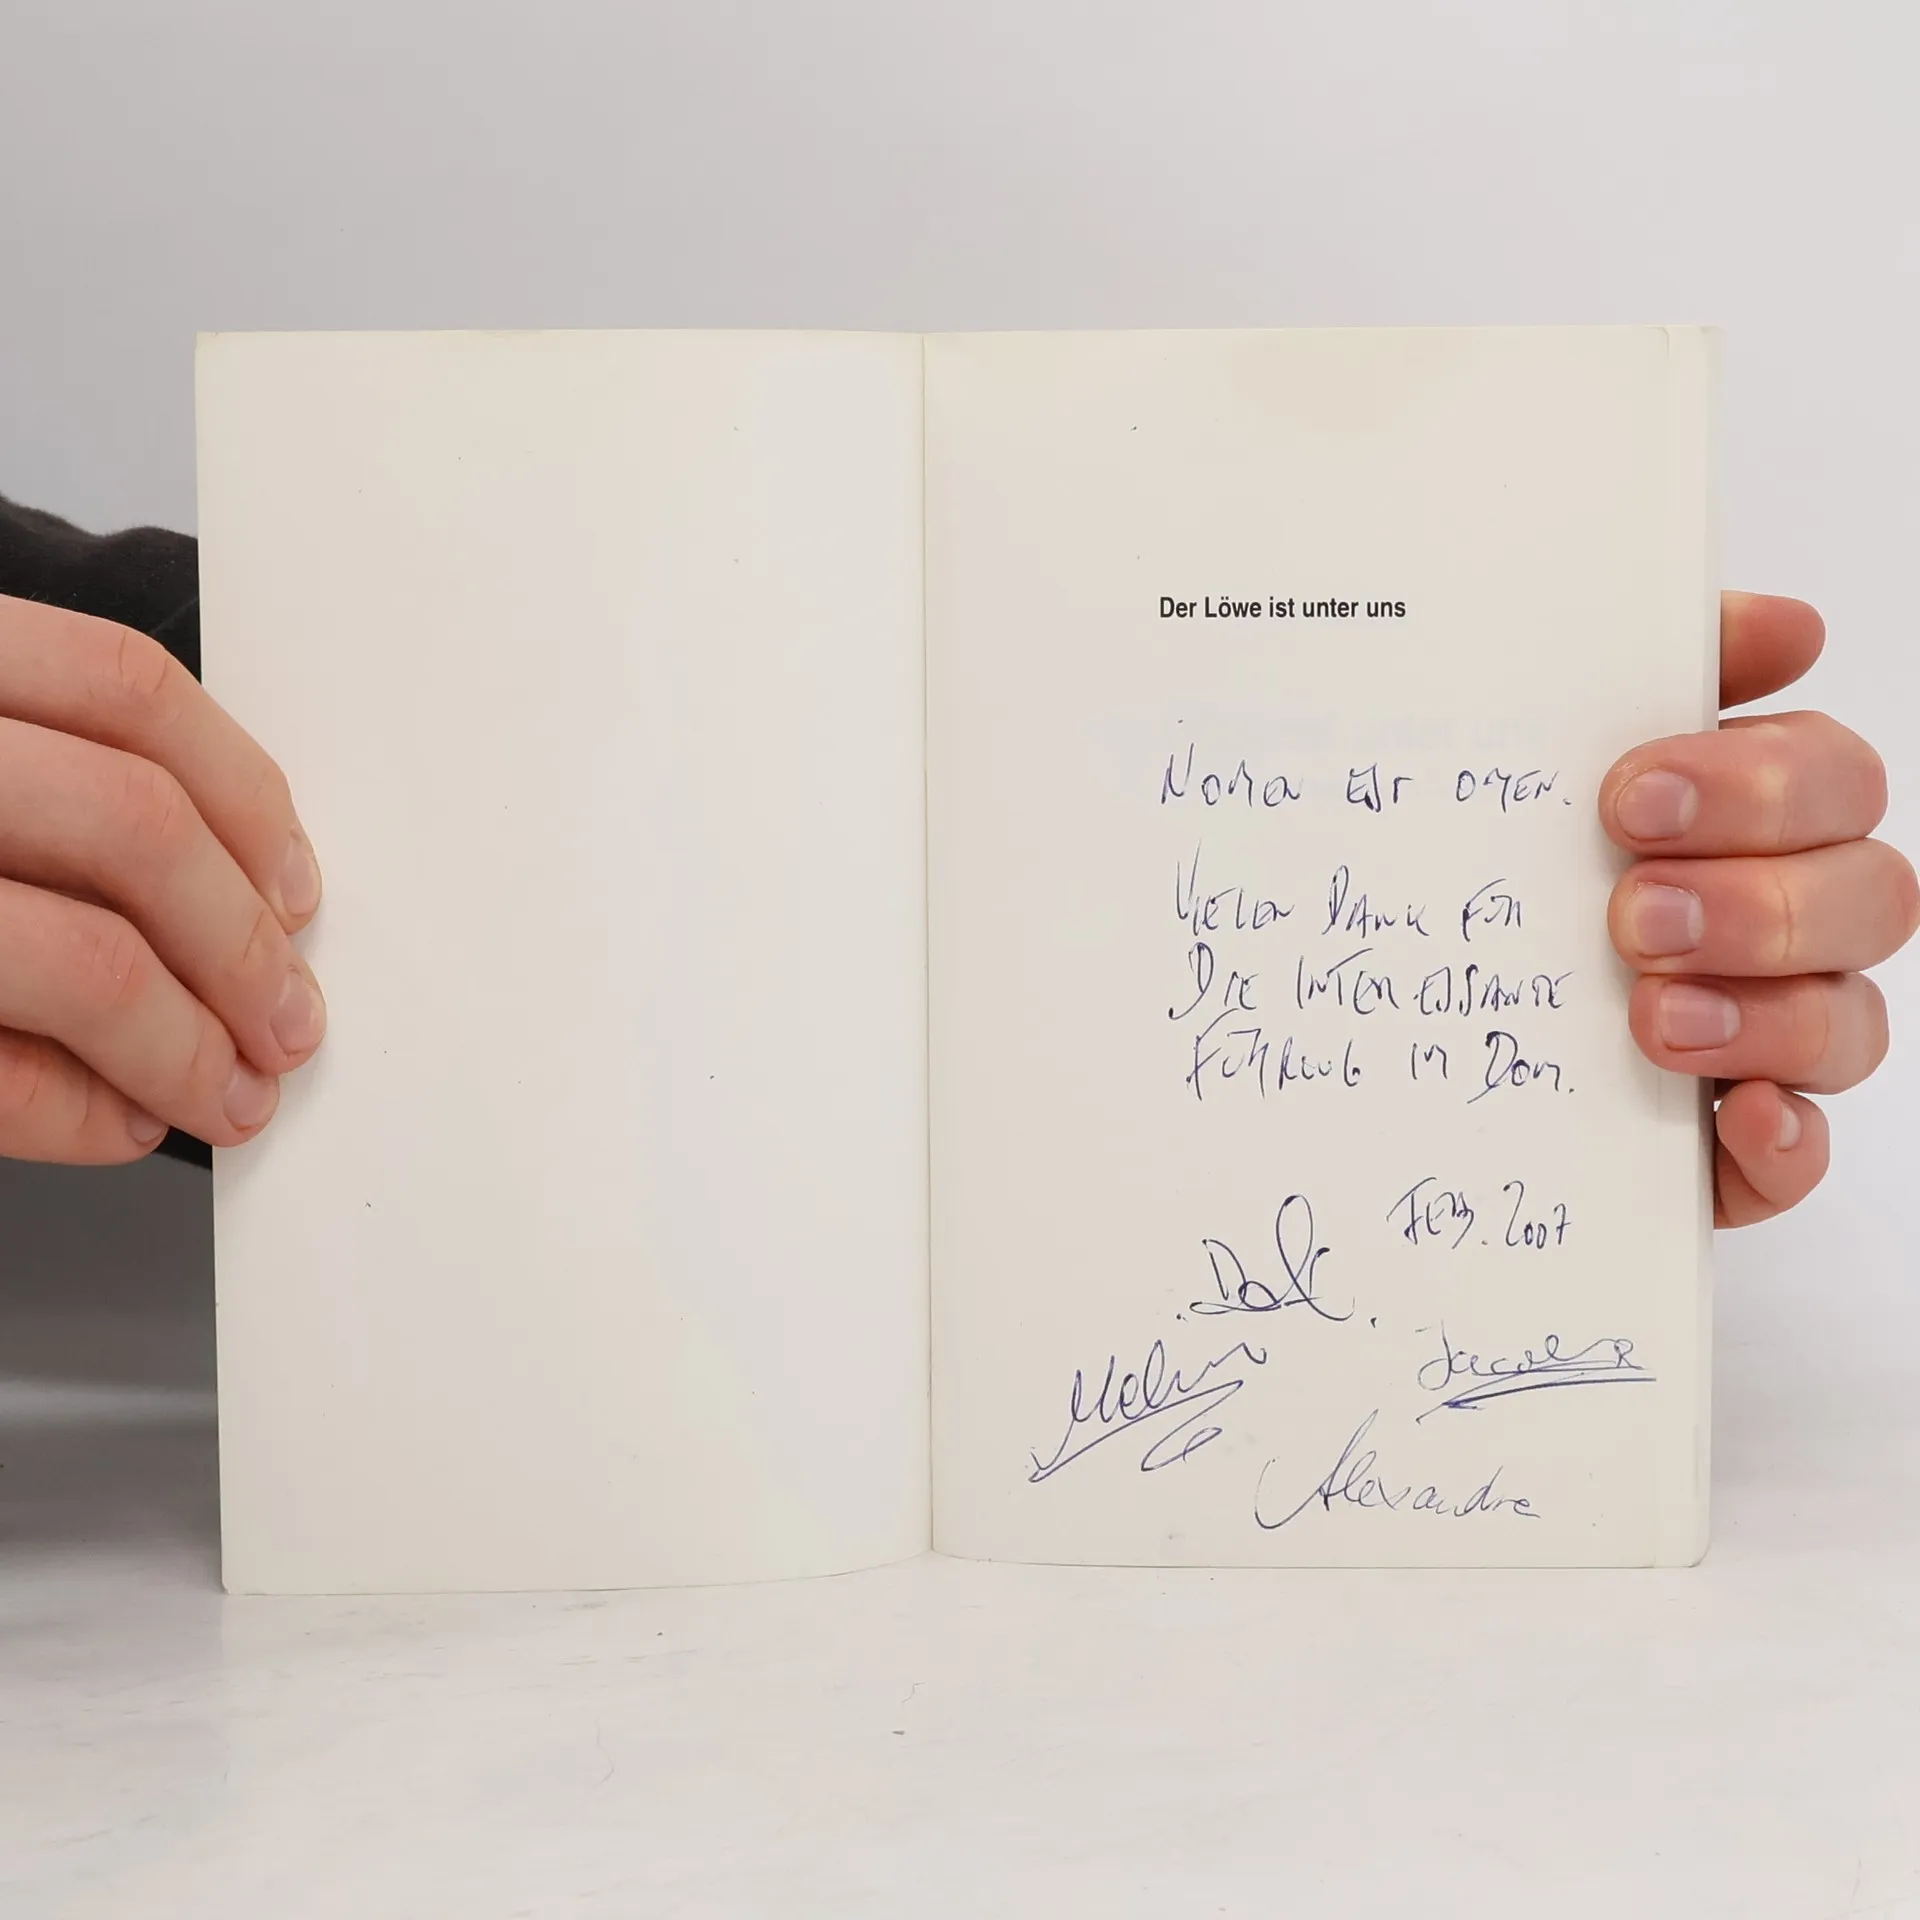 Der Löwe ist unter uns
NOMEN EST OMEN.
VIELEN DANK FÜR
DIE INTERESSANTE
FÜHRUNG IM DOM.
FEB. 2007
Alexandre